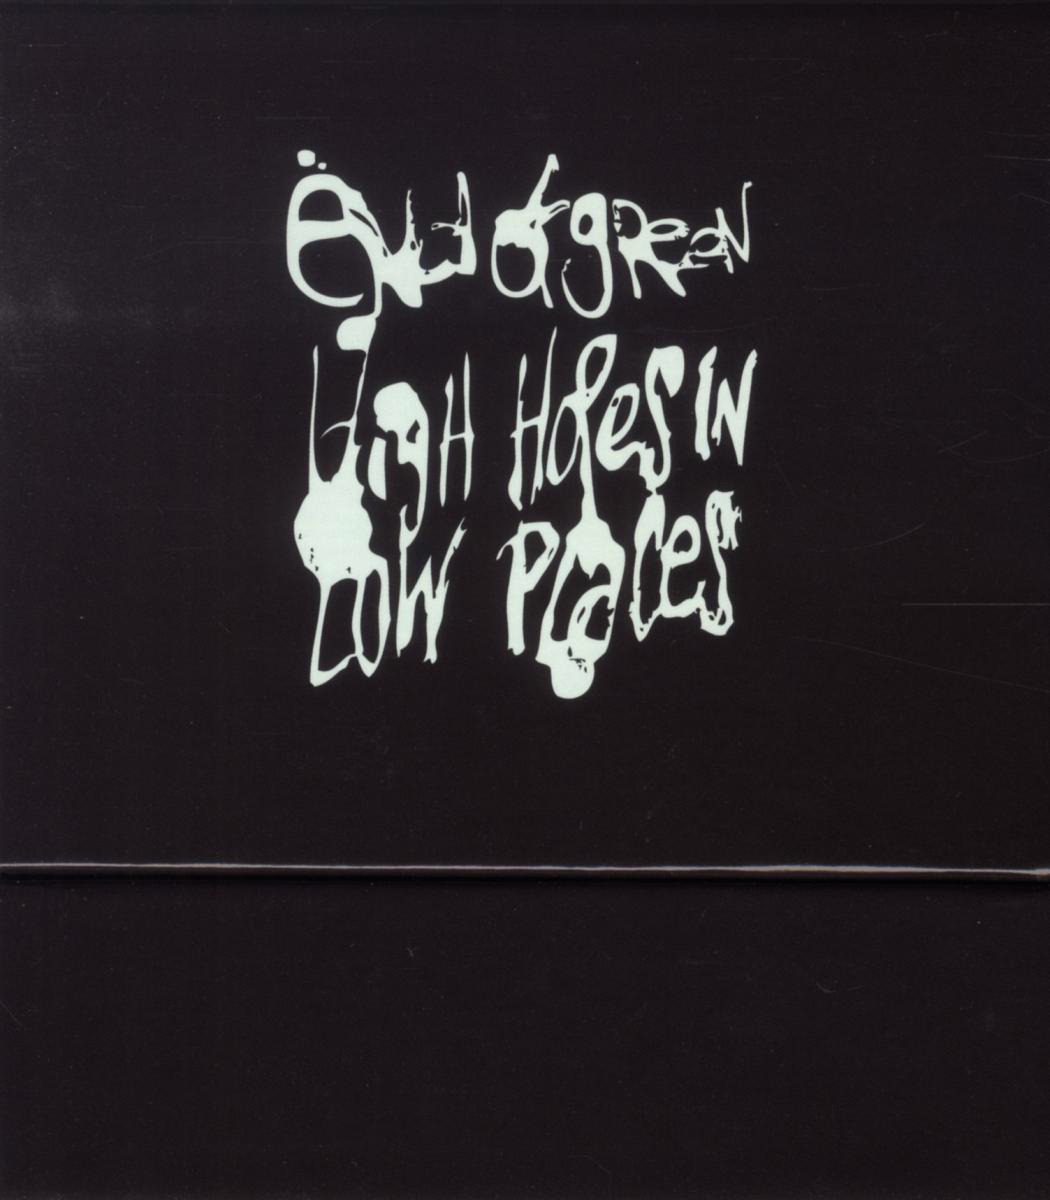 END of gReeN
HigH HopeS IN
LOW PLaceS